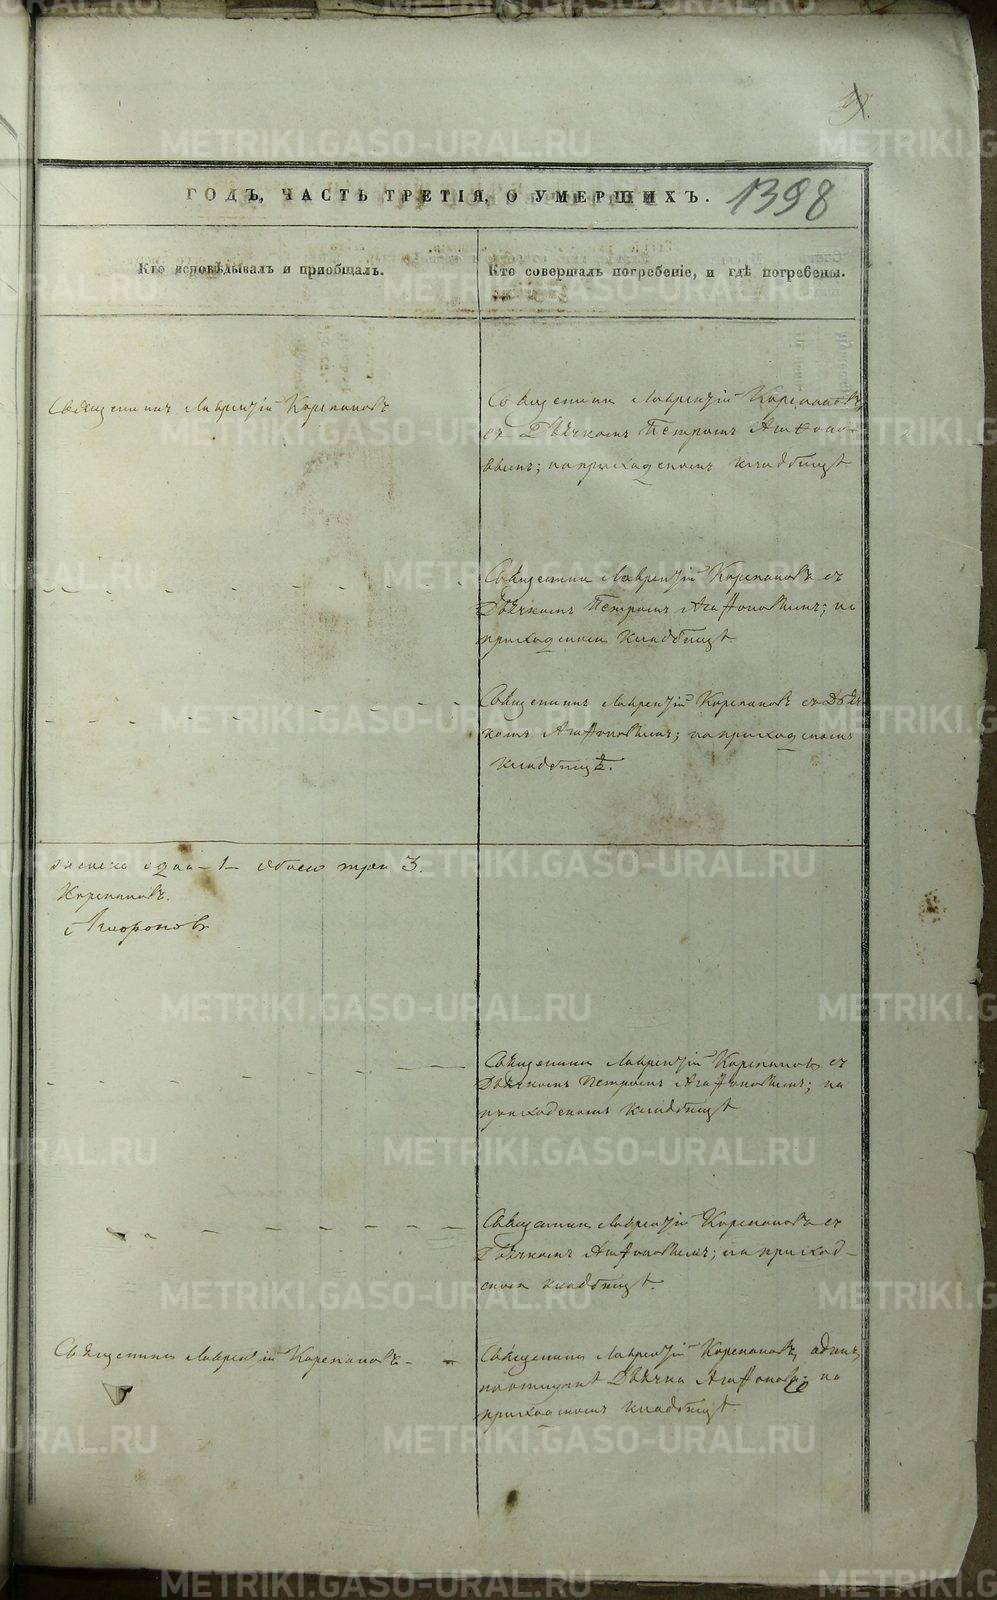 1398
ГОДЪ, ЧАСТЬ ТРЕТІЯ, О УМЕРШИХЪ.
Кто исповѣдывалъ и пріобщалъ.
Кто совершалъ погребеніе, и гдѣ погребены.
Священникъ Лаврентій Корепановъ
Священник Лаврентій Корепановъ
съ Дьячкомъ Петромъ Агафоно-
вымъ; на приходскомъ кладбищѣ
Священник Лаврентій Корепановъ съ
Дьячкомъ Петромъ Агафоновымъ; на
приходском кладбищѣ
Священникъ Лаврентій Корепановъ съ Дьяч-
комъ Агафоновымъ; на приходскомъ
кладбищѣ.
женска одна -1- обоего трои 3.
Корепановъ.
Агафоновъ
Священник Лаврентій Корепановъ съ
Дьячкомъ Петромъ Агафоновымъ; на
приходскомъ кладбищѣ
Священник Лаврентій Корепановъ съ
Дьячкомъ Агафоновымъ; на приход-
ском кладбищѣ.
Священник Лаврентій Корепановъ
Священник Лаврентій Корепановъ, адинъ,
Дьячка Агафонова; на
приходскомъ кладбищѣ.
METRIKI.GASO-URAL.RU